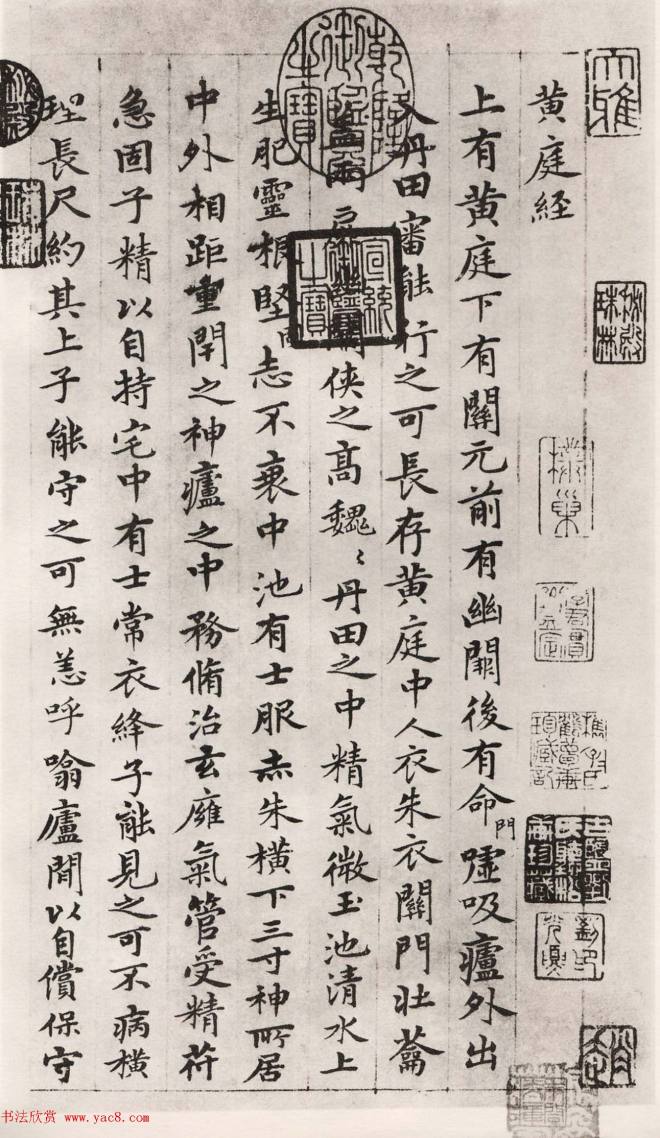 黄庭経
上有黄庭下有關元前有幽闕後有命門噓吸廬外出
入丹田審能行之可長存黄庭中人衣朱衣關門壯蘥
蓋兩扉幽闕侠之高魏〻丹田之中精氣微玉池清水上
生肥靈根堅固志不衰中池有士服赤朱横下三寸神所居
中外相距重閇之神廬之中務脩治玄廱氣管受精苻
急固子精以自持宅中有士常衣絳子能見之可不病横
理長尺約其上子能守之可無恙呼噏廬間以自償保守
大雅
宣統御覽之寶
乾隆御覽之寶
書法欣赏 www.yac8.com